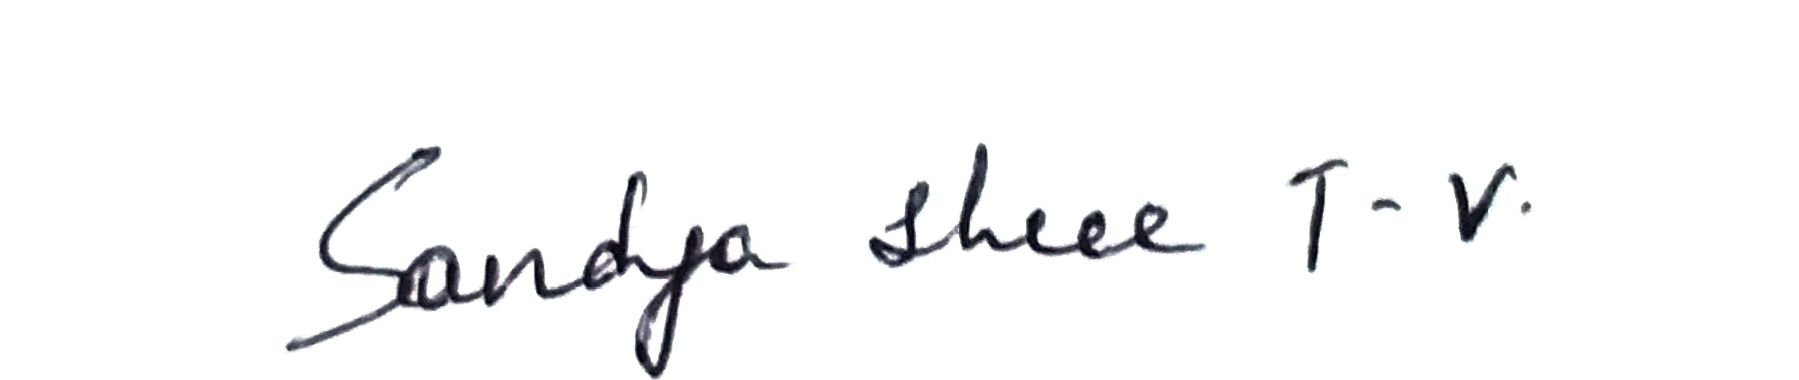 Sandya shree T-V.